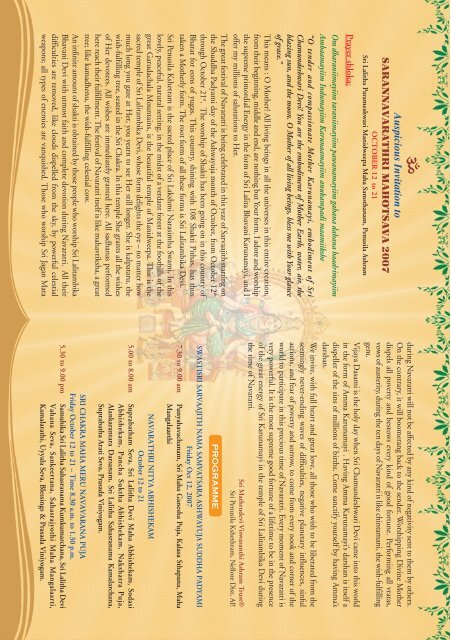 ॐ
Auspicious Invitation to
SARANNAVARATHRI MAHOTSAVA 2007
OCTOBER 12 to 21
Sri Lalitha Parameshwari Manidweepa Maha Samsthanam, Penusila Ashram
Prayer shloka:
"O tender and compassionate Mother Karunamayi, embodiment of Sri
Chamundeshwari Devi! You are the embodiment of Mother Earth, water, air, the
blazing sun, and the moon. O Mother of all living beings, bless me with Your glance
of grace."
This means - O Mother! All living beings in all the universes in this entire creation,
from their beginning, middle and end, are nothing but Your form. I adore and worship
the supreme primordial Energy in the form of Sri Lalita Bhavani Karunamayi, and I
offer my millions of salutations to Her.
The great festival of Navaratri is being celebrated in this year of Sarvajith starting on
the Shuddha Padyami day of the Aswayuja month of October, from October 12th
through October 21st. The worship of Shakti has been going on in this country of
Bharat for eons of yugas. This country, shining with 108 Shakti Pithas has thus
taken a Motherly form. The root form of all these forms is Sri Lalitambika Devi.
Sri Penusila Kshetram is the sacred place of Sri Lakshmi Narasimha Swami. In this
lovely, peaceful, natural setting, in the midst of a verdant forest at the foothills of the
great Garudachala Mountains, is the beautiful temple of Manidweepa. That is the
sacred temple of Sri Lalitambika Devi, whose form delights the eye – no matter how
much long you gaze at Her, you yearn to see Her still longer. She is kalpataru, the
wish-fulfilling tree, seated in the Sri Chakra. In this temple She grants all the wishes
of Her devotees. All wishes are immediately granted here. All sadhanas performed
here reach their fulfillment. The festival of Navaratri itself is like kalpavriksha, a great
tree; like kamadhenu, the wish-fulfilling celestial cow.
An infinite amount of shakti is obtained by those people who worship Sri Lalitambika
Bhavani Devi with utmost faith and complete devotion during Navaratri. All their
difficulties are removed, like clouds dispelled from the sky. By powerful celestial
weapons, all types of enemies are vanquished. Those who worship Sri Jagan Mata
during Navaratri will not be affected by any kind of negativity sent to them by others.
On the contrary, it will boomerang back to the sender. Worshipping Divine Mother
dispels all poverty and bestows every kind of good fortune. Performing all vratas,
vows of austerity, during the ten days of Navaratri is like chintamani, the wish-fulfilling
gem.
Vijaya Dasami is the holy day when Sri Chamundeshwari Devi came into this world
in the form of Amma Karunamayi - Having Amma Karunamayi's darshan is itself a
dispeller of the sins of millions of births. Come sanctify yourself by having Amma's
darshan.
We invite, with full heart and great love, all those who wish to be liberated from the
seemingly never-ending waves of difficulties, negative planetary influences, sinful
actions, and fear of poverty and sorrow, to come from every nook and corner of the
world to participate in this precious time of Navaratri. Every moment of Navaratri is
very powerful. It is the most supreme good fortune of a lifetime to be in the presence
of the great energy of Sri Karunamayi in the temple of Sri Lalitambika Devi during
the time of Navaratri.
Sri Mathrudevi Viswashanthi Ashram Trust®
Sri Penusila Kshethram, Nellore Dist., AP.
PROGRAMME
SWASTI SRI SARVAAJITH NAMA SAMVATSARA ASHWAYUJA SUDDHA PADYAMI
Friday Oct 12, 2007
7.30 to 9.00 am Punyahavachanam, Sri Maha Ganesha Puja, Kalasa Sthapana, Maha
Mangalarathi
NAVARATHRI NITYA ABHISHEKAM
October 12 – 21
5.00 to 8.00 am Suprabatham Seva, Sri Lalitha Devi Maha Abhishekam, Sodasi
Abhishekam, Pancha Suktha Abhishekam, Nakshatra Puja,
Alankarotara Darsanam, Sri Lalitha Sahasranama Kumkumarchana,
Suprabatha Arati Seva, Prasada Viniyogam.
SRI CHAKRA MAHA MERU NAVAVARANA PUJA
Friday October 12 to 21 – Time 8.30 a.m. to 1.30 p.m.
5.30 to 9.00 pm Samuhika Sri Lalitha Sahasranama Kumkumarchana, Sri Lalitha Devi
Vahana Seva, Sankeertana, Sahasrajyothi Maha Mangalaarti,
Kanndaarthi, Uyyala Seva, Blessings & Prasada Viniyogam.